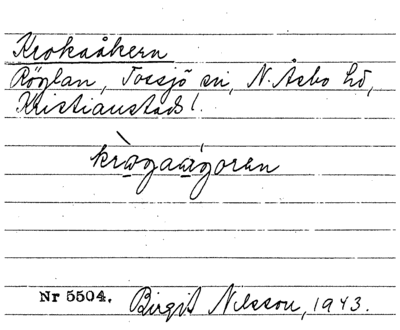 Krokaåkern
Röglan, Tossjö sn, N. Åsbo hd,
Kristianstads l.
krògaágoren
Nr 5504. Birgit Nilsson, 1943.